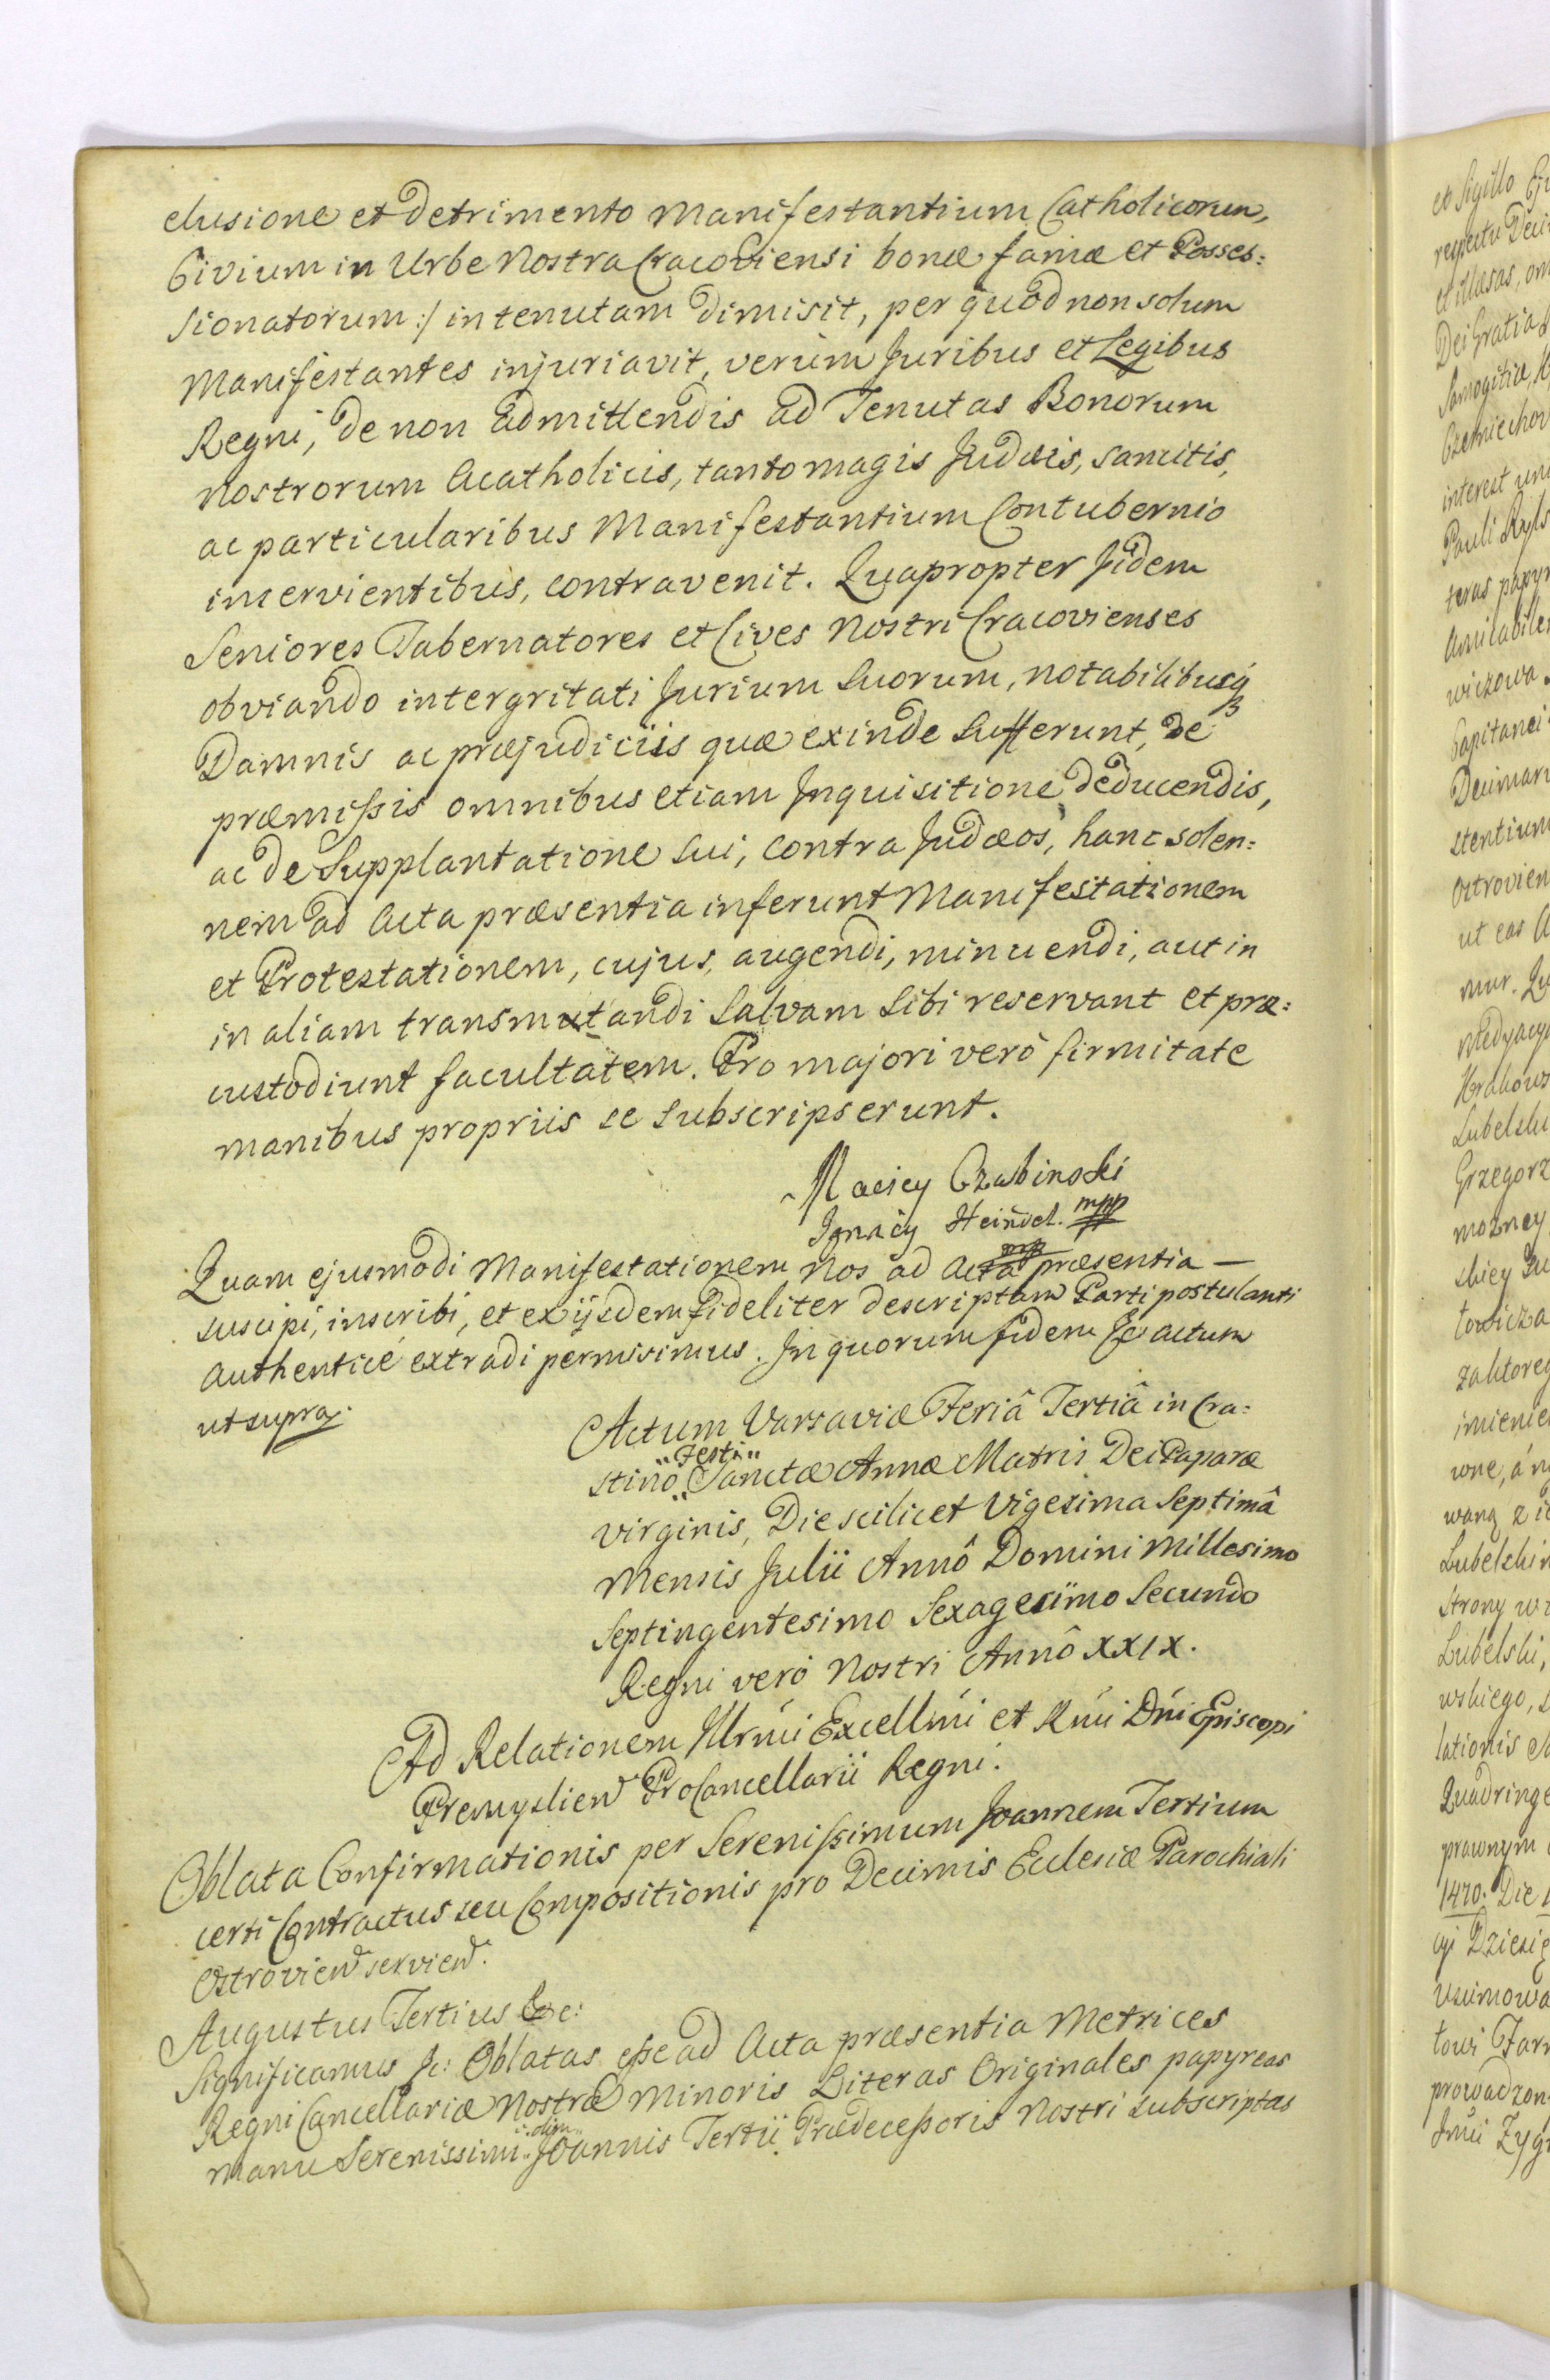 elusione et detrimento Manifestantium Catholicorum,
Civium in Urbe Nostra Cracoviensi bonæ famæ et Posses:
sionatorum :/ in tenutam dimisit, per quod non solum
Manifestantes injuriavit, verùm Juribus et Legibus
Regni, de non admittendis ad Tenutas Bonorum
Nostrorum Acatholicis, tanto magis Judæis, sancitis,
ac particularibus Manifestantium Contubernio
inservientibus, contravenit. Quapropter Jidem
Seniores Tabernatores et Cives Nostri Cracovienses
obviando intergritati Jurium Suorum, notabilibusq
Damnis ac præjudiciis quæ exinde sufferunt, de
præmissis omnibus etiam Inquisitione deducendis,
ac de Supplantatione sui, contra Judæos, hanc solen:
nem ad Acta præsentia inferunt Manifestationem
et Protestationem, cujus, augendi, minuendi, aut in
in aliam transmutandi Salvam sibi reservant et præ:
custodiunt facultatem. Pro majori verò firmitate
manibus propriis se subscripserunt.
Maciey Czabinski
Jgnacy Heindel. mpp
mp
Quam ejusmodi Manifestationem Nos ad Acta præsentia —
suscipi, inscribi, et ex ijsdem fideliter descriptam Parti postulanti
Authenticè extradi permisimus. In quorum fidem &c actum
ut supra.
Actum Varsaviæ Feriâ Tertiâ in Cra:
"Festi"
stinô Sanctæ Annæ Matris Dei Paparæ
virginis, Die scilicet Vigesima Septimâ
Mensis Julii Annô Domini Millesimo
Septingentesimo Sexagesimo Secundo
Regni verò Nostri Annô XXIX.
Ad Relationem Illrmi Excellmi et Rmi Dni Episcopi
Premyslien ProCancellarii Regni.
Oblata Confirmationis per Serenissimum Joannem Tertium
certi Contractus seu Compositionis pro Decimis Eclesiæ Parochiali
Ostrovien servien.
Augustus Tertius &c:
Significamus &c: Oblatas esse ad Acta præsentia Metrices
Regni Cancellariæ Nostræ Minoris Literas Originales papyreas
"olim"
manu Serenissimi Joannis Tertii Prædecessoris Nostri subscriptas
et Sigillo
respectu
et illæsas,
Dei Gratia
Samogitiæ,
interest
Pauli
teras
wiczowa
Capitanei
stentium
Ostrovien
ut eas
mur.
Grzegorz
mozney
imienie
wną z
Strony w
Lubelski,
wskiego,
lationis
Quadringe
prawnym
1470. Die
towi
prowadzon